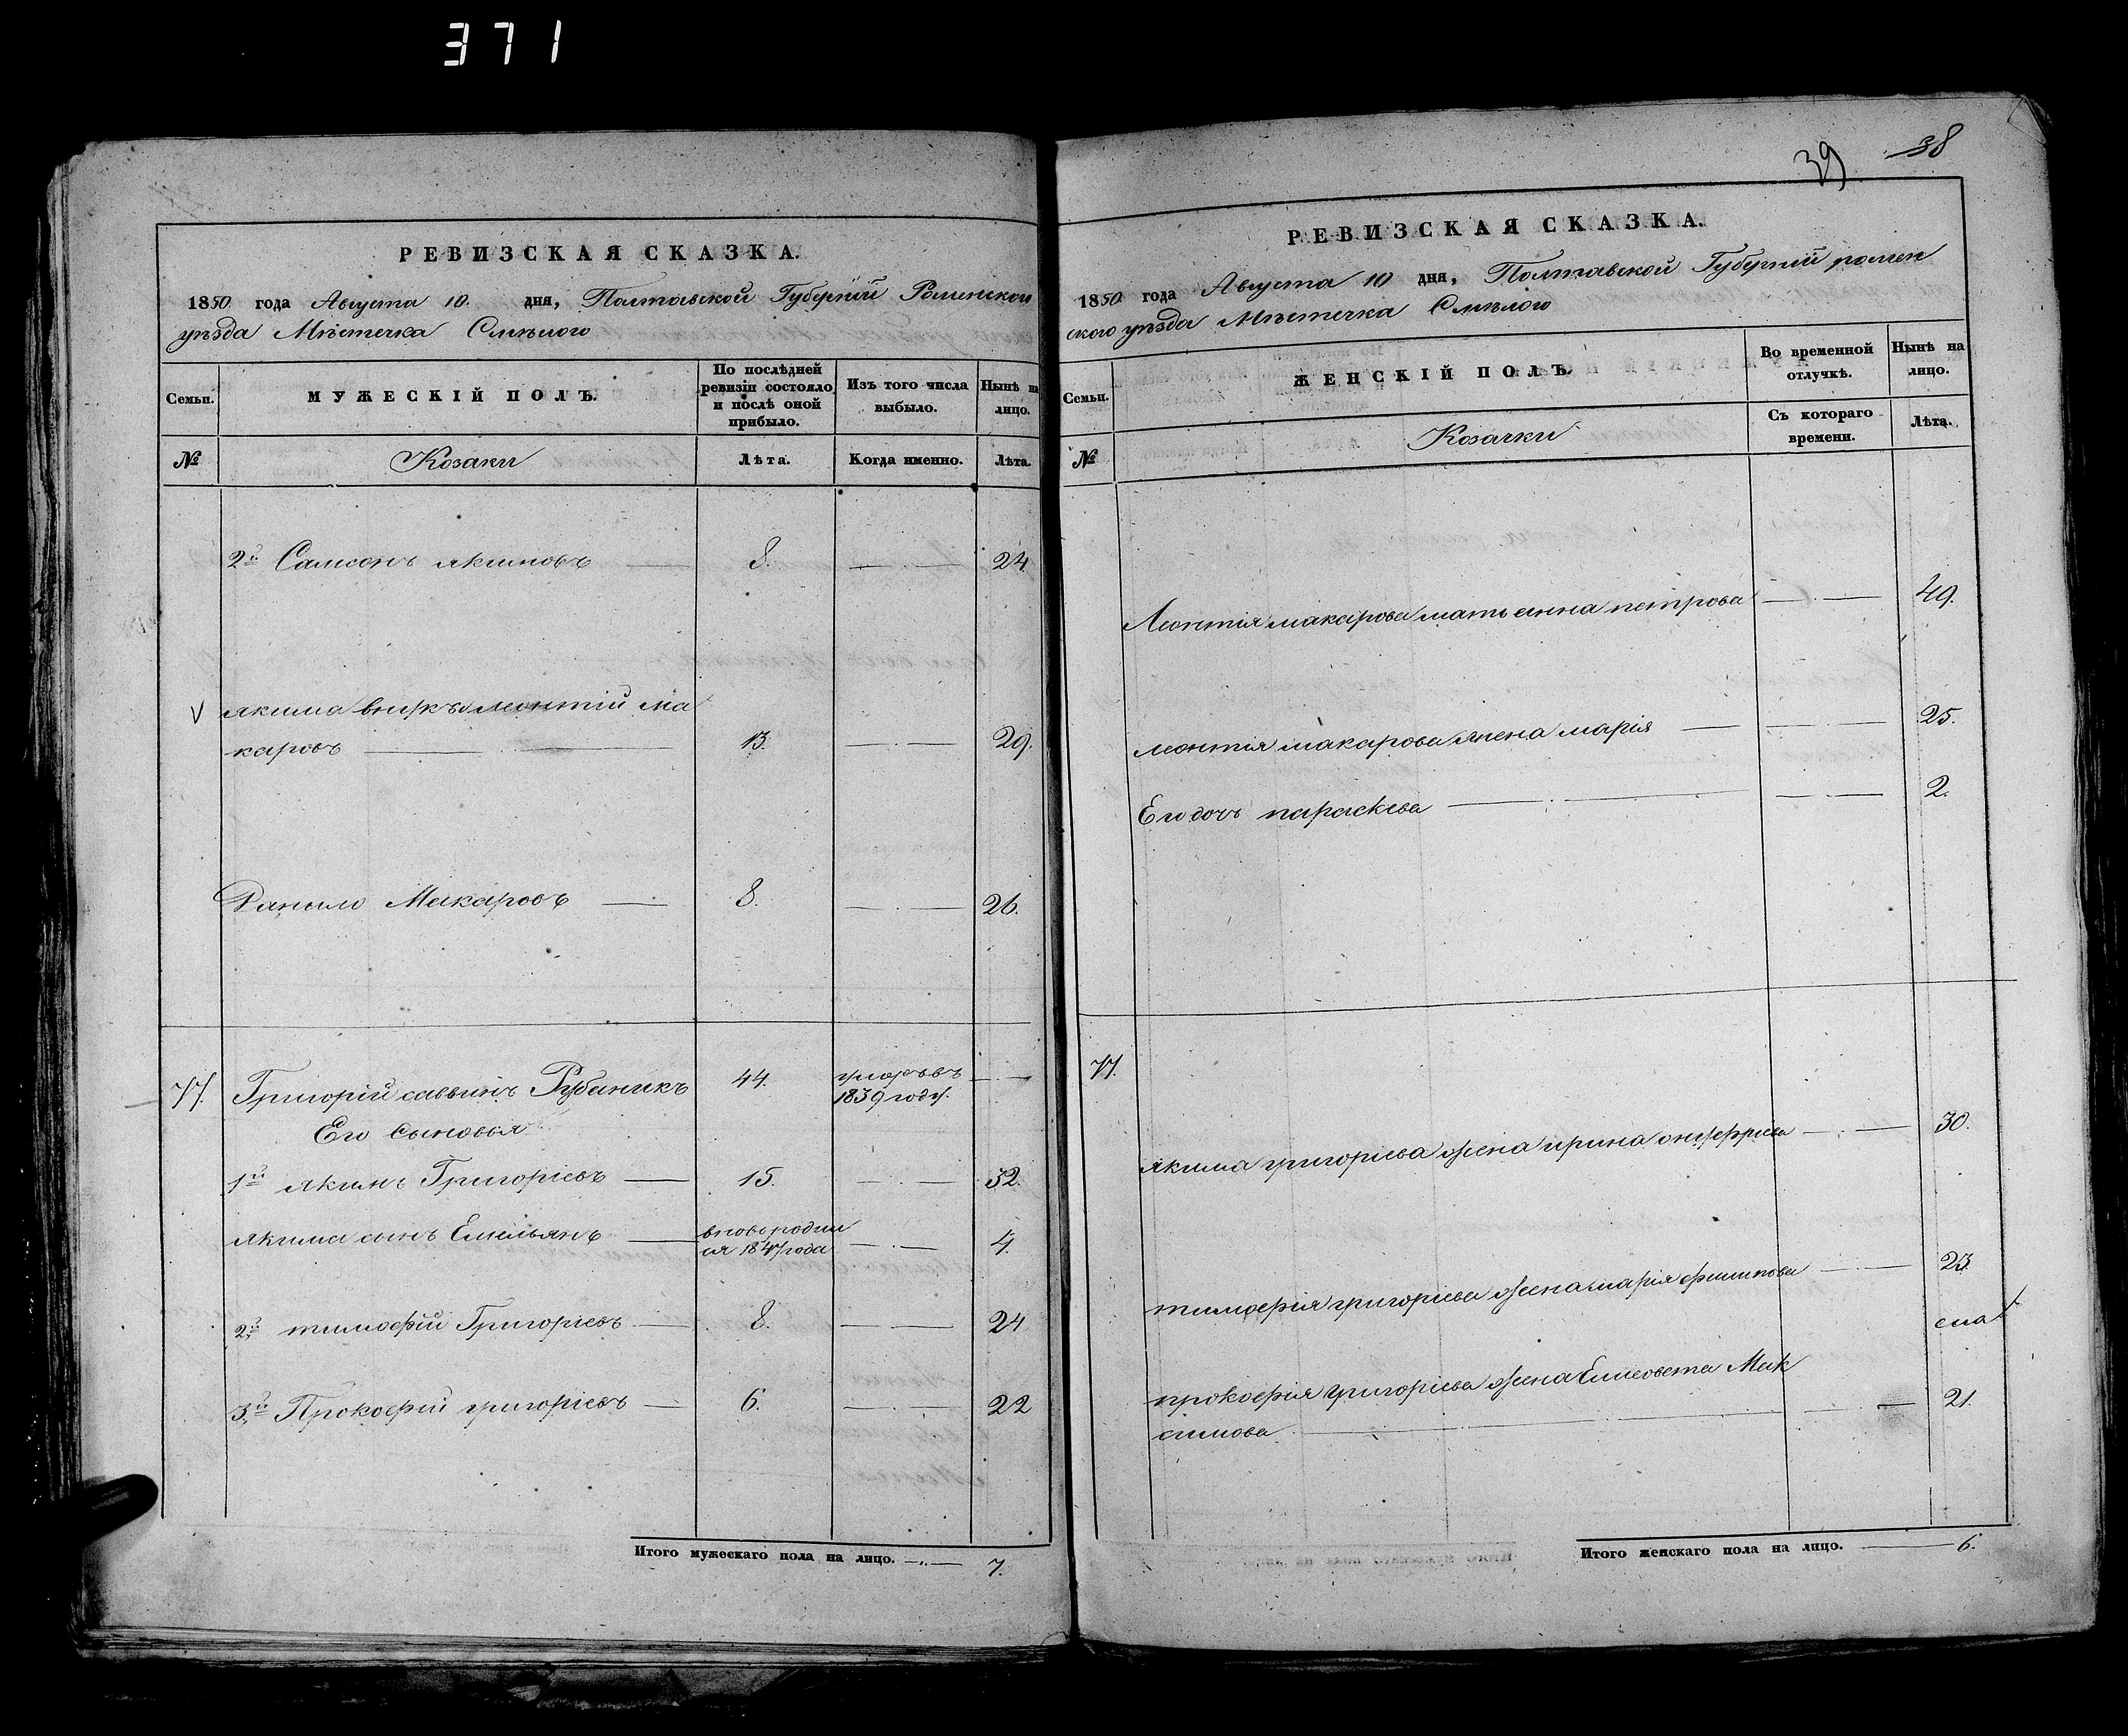 371
РЕВИЗСКАЯ СКАЗКА.
1850 года Августа 10. дня, Полтавской Губерніи Роменского
уѣзда Мѣстечка Смѣлого
Семьи.
МУЖЕСКІЙ ПОЛЪ.
По послѣдней
ревизіи состояло
и послѣ оной
прибыло.
Изъ того числа
выбыло.
Нынѣ на
лицо.
№
Козаки
Лѣта.
Когда именно.
Лѣта.
2й Самсонъ якимовъ 8. 24.
V якима внукъ леонтій ма
каровъ 13. 29.
Данило Макаровъ 8. 26.
77. Григорій саввинъ Рубаникъ 44. умеръ въ
1839 году.
Его Сыновья
1й якимъ Григоріевъ 15. 32.
якима сынъ Емельянъ вновь родил
ся 1847 года 4.
2й тимофій Григоріевъ 8. 24
3й Прокофій григоріевъ 6. 22
Итого мужескаго пола на лицо. 7.
39 38
РЕВИЗСКАЯ СКАЗКА.
1850 года Августа 10 дня, Полтавской Губерніи ромен
ского уѣзда Мѣстечка Смѣлого
Семьи.
ЖЕНСКІЙ ПОЛЪ.
Во временной
отлучкѣ.
Нынѣ на
лицо.
№
Козачки
Съ котораго
времени.
Лѣта.
Леонтія макарова мать анна петрова 49.
леонтія макарова жена марія 25.
Его дочь параскева 2.
77.
якима григоріева жена ирина онуфріева 30.
тимофія григоріева жена марія филипова 23.
прокофія григоріева жена Елисовета Мак
симова 21.
Итого женскаго пола на лицо. 6.